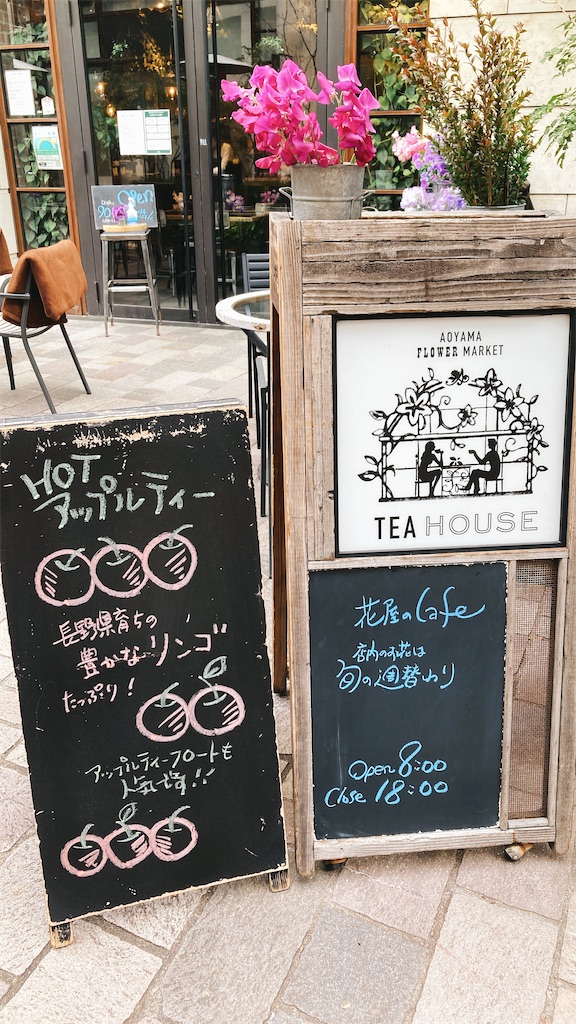 HOT
アップルティー
長野県育ちの
豊かなリンゴ
たっぷり！
アップルティーフロートも
人気です!!
AOYAMA
FLOWER MARKET
TEA HOUSE
花屋のCafe
店内のお花は
旬の週替わり
Open 8:00
Close 18:00
Open